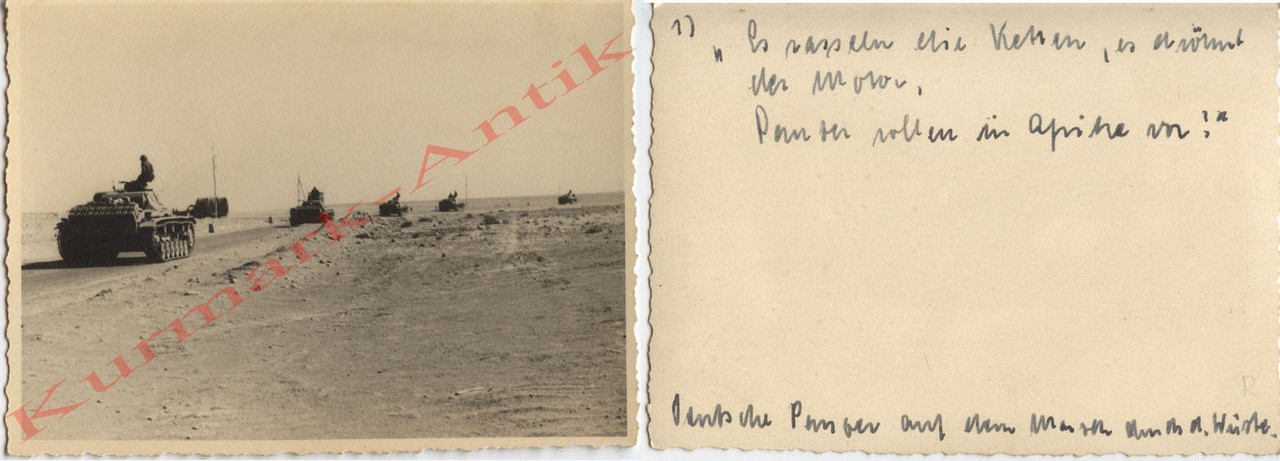 Kurmark-Antik
1) „Es rasseln die Ketten, es dröhnt
der Motor,
Panzer rollen in Afrika vor!"
Deutsche Panzer auf dem Marsch durch d. Wüste.
R